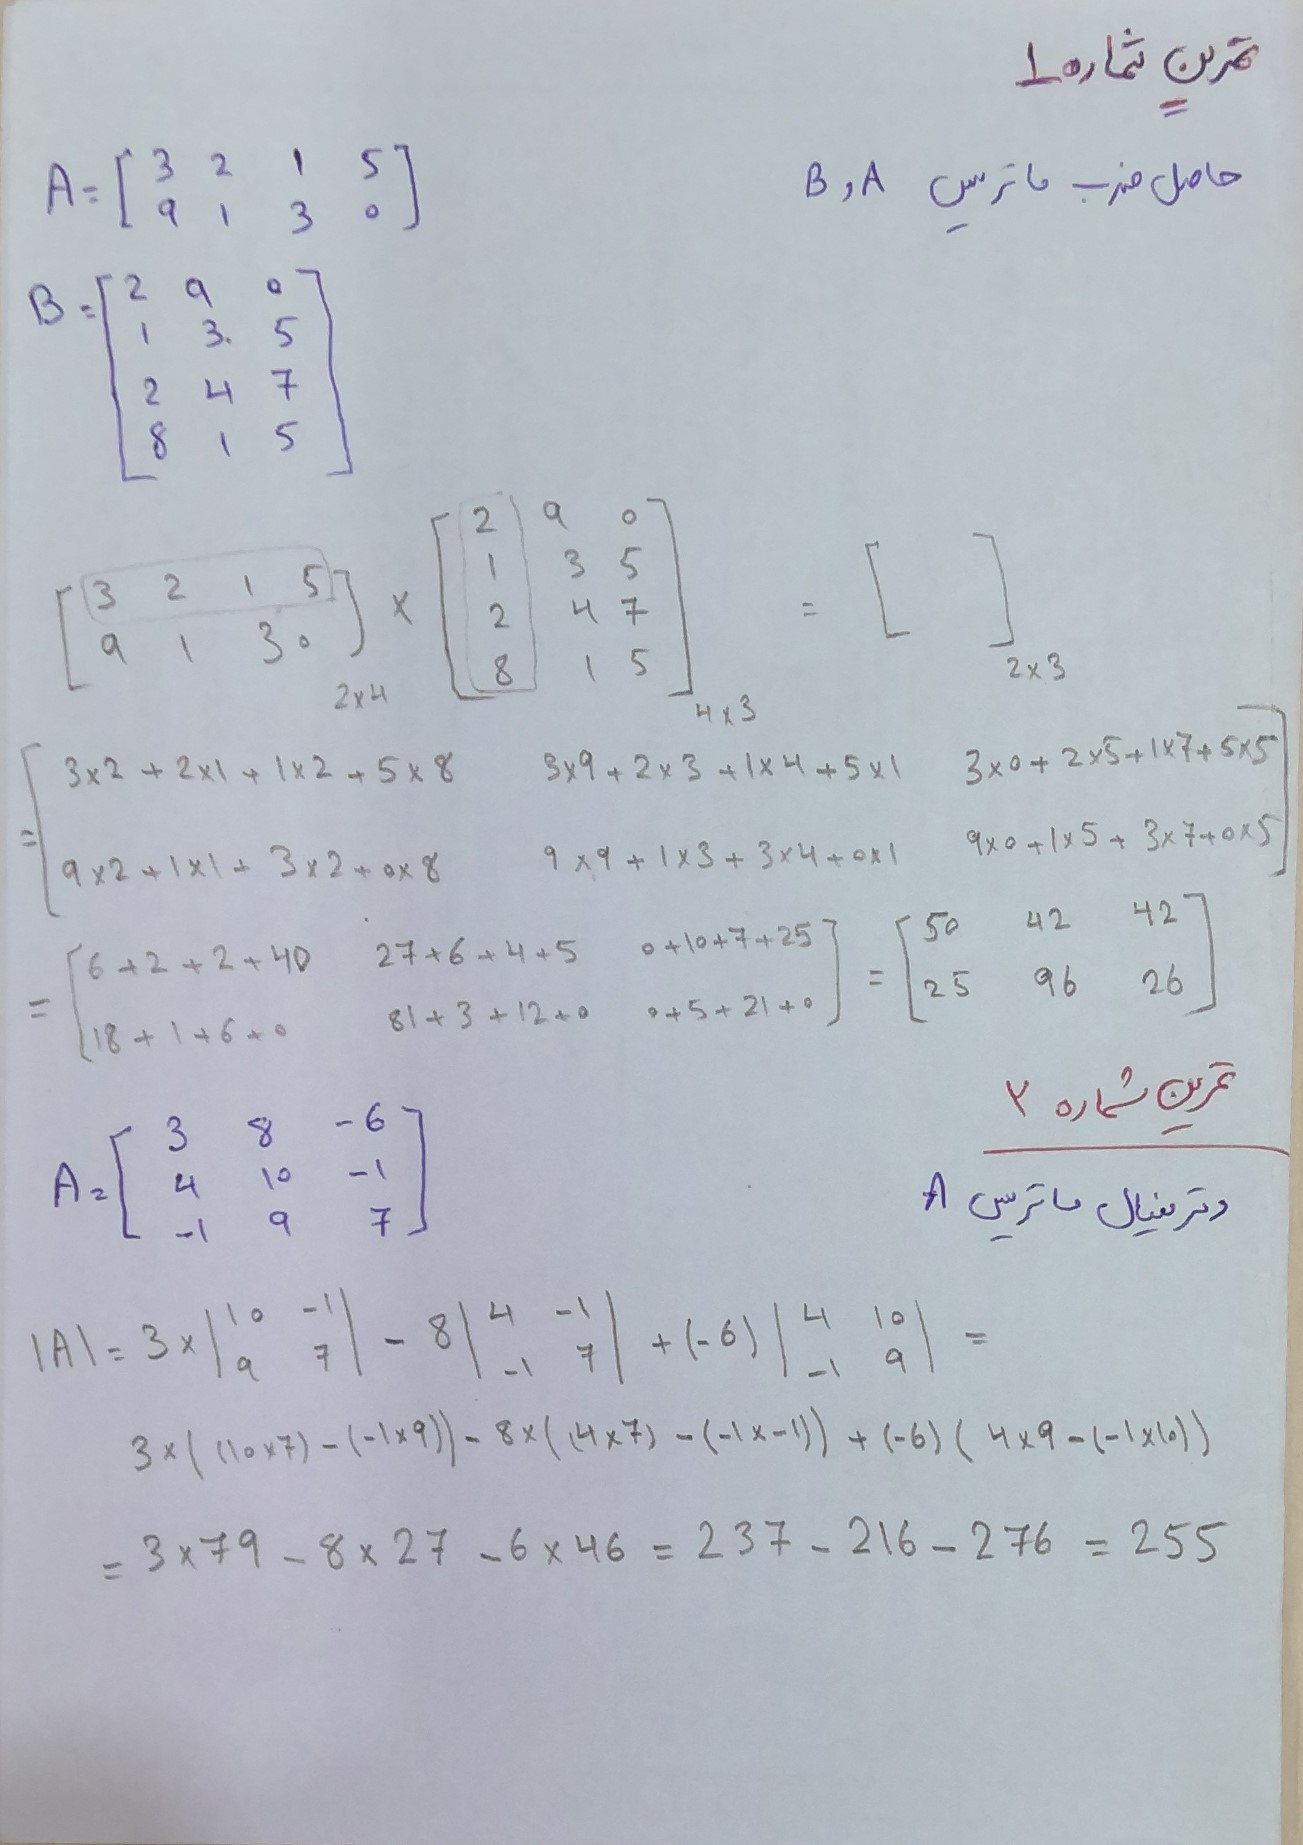 تمرین شماره 1
حاصل ضرب ماتریس A و B
A = [ 3 2 1 5
9 1 3 0 ]
B = [ 2 9 0
1 3 5
2 4 7
8 1 5 ]
[ 3 2 1 5
9 1 3 0 ] 2×4 × [ 2 9 0
1 3 5
2 4 7
8 1 5 ] 4×3 = [ ] 2×3
= [ 3×2+2×1+1×2+5×8 3×9+2×3+1×4+5×1 3×0+2×5+1×7+5×5
9×2+1×1+3×2+0×8 9×9+1×3+3×4+0×1 9×0+1×5+3×7+0×5 ]
= [ 6+2+2+40 27+6+4+5 0+10+7+25
18+1+6+0 81+3+12+0 0+5+21+0 ] = [ 50 42 42
25 96 26 ]
تمرین شماره ۲
دترمینال ماتریس A
A = [ 3 8 -6
4 10 -1
-1 9 7 ]
|A| = 3× | 10 -1
9 7 | - 8 | 4 -1
-1 7 | + (-6) | 4 10
-1 9 | =
3×((10×7)-(-1×9))-8×((4×7)-(-1×-1))+(-6)(4×9-(-1×10))
= 3×79-8×27-6×46 = 237-216-276 = 255